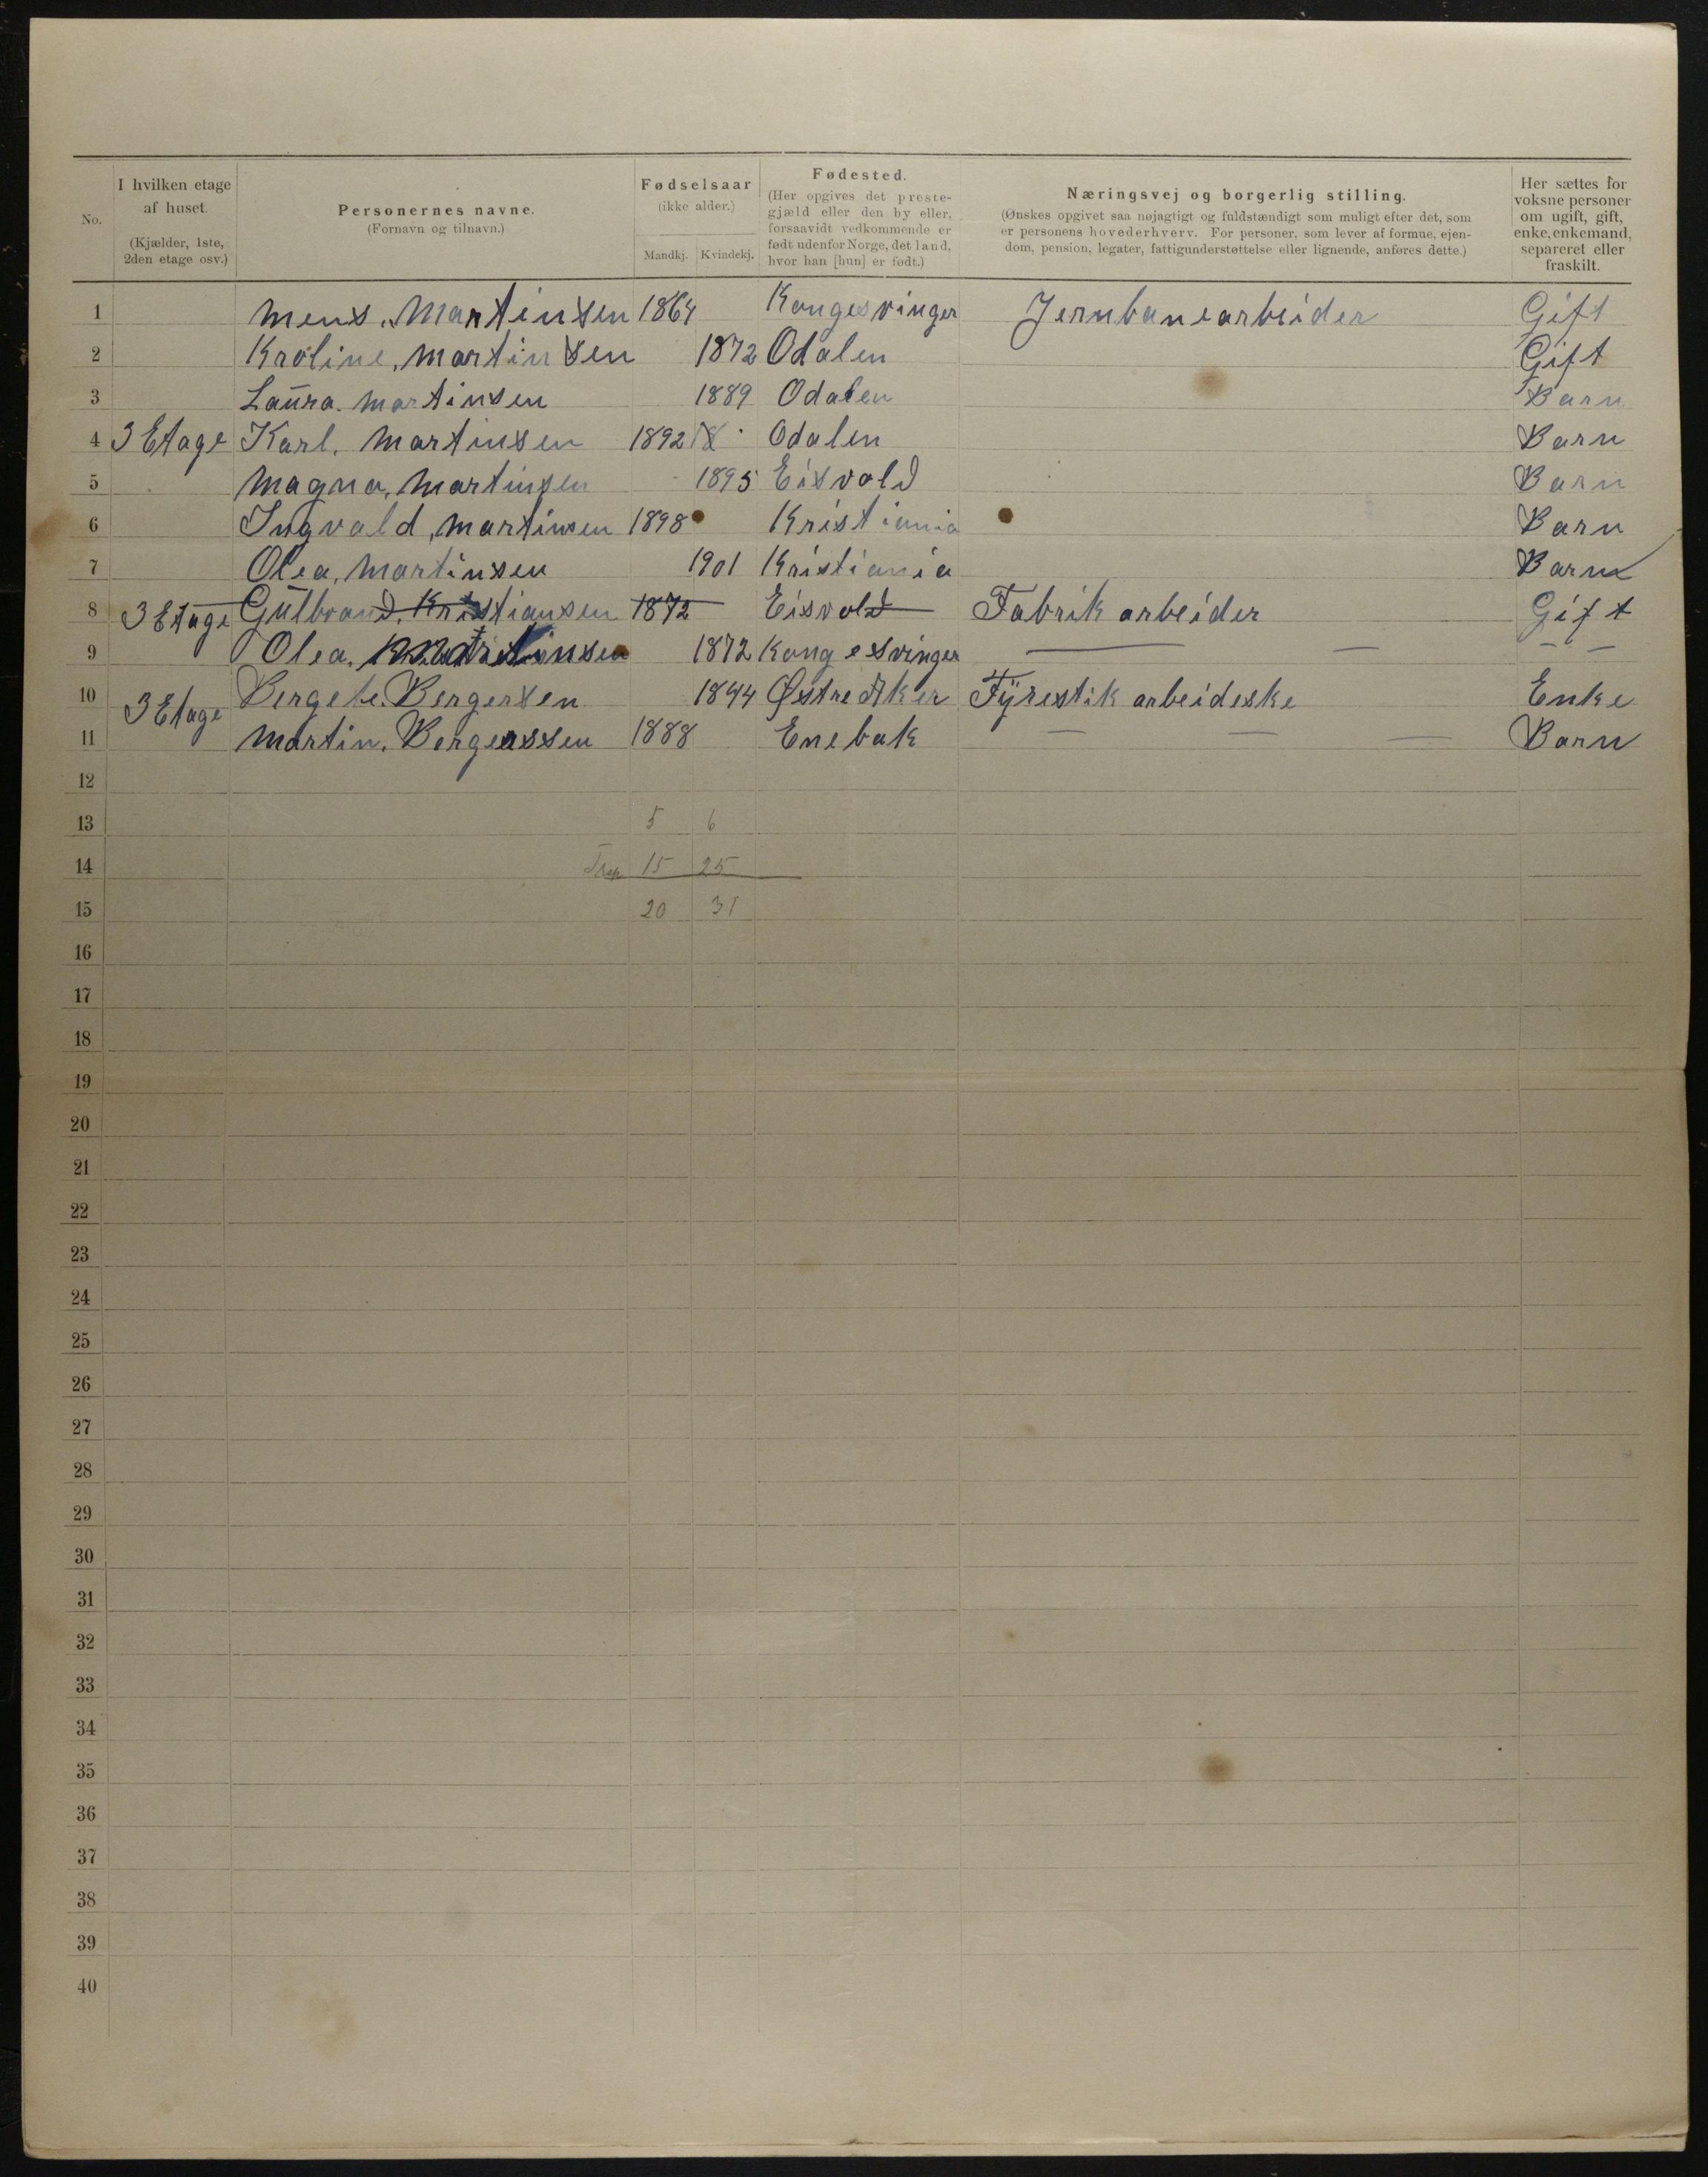 No.
I hvilken etage af huset. (Kjælder, 1ste, 2den etage osv.)
Personernes navne. (Fornavn og tilnavn.)
Fødselsaar (ikke alder.) Mandkj. Kvindekj.
Fødested. (Her opgives det prestegjæld eller den by eller, forsaavidt vedkommende er født udenfor Norge, det land, hvor han [hun] er født.)
Næringsvej og borgerlig stilling. (Ønskes opgivet saa nøjagtigt og fuldstændigt som muligt efter det, som er personens hovederhverv. For personer, som lever af formue, ejendom, pension, legater, fattigunderstøttelse eller lignende, anføres dette.)
Her sættes for voksne personer om ugift, gift, enke, enkemand, separeret eller fraskilt.
1 Mens. Martinsen 1864 Kongesvinger Jernbanearbeider Gift
2 Kroline, Martinsen 1872 Odalen Gift
3 Laura. Martinsen 1889 Odalen Barn
4 3 Etage Karl. Martinsen 1892 18 Odalen Barn
5 Magna, Martinsen 1895 Eisvold Barn
6 Ingvald, Martinsen 1898 Kristiania Barn
7 Olea, Martinsen 1901 Kristiania Barn
8 3 Etage Gulbrand, Kristiansen 1872 Eisvold Fabrik arbeider Gift
9 Olea. 1872 Kongesvinger — — — —
10 3 Etage Bergete. Bergersen 1844 Østre Aker Fyrestik arbeideske Enke
11 Martin. Bergerssen 1888 Enebak — — — Barn
12
13 5 6
14 15 25
15 20 31
16
17
18
19
20
21
22
23
24
25
26
27
28
29
30
31
32
33
34
35
36
37
38
39
40